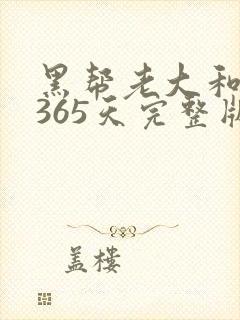 黑帮老大和
365天完整版
盖楼